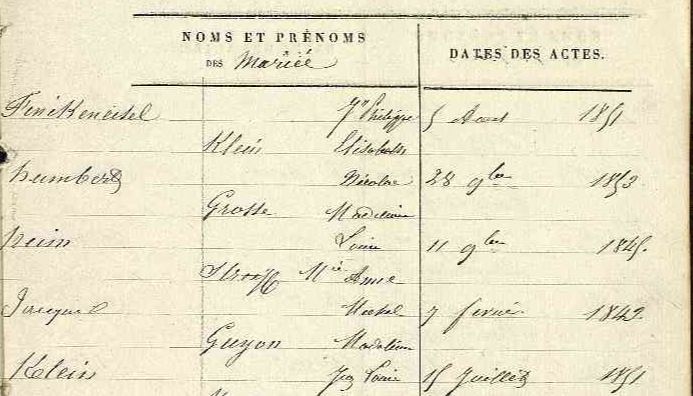 NOMS ET PRÉNOMS
DES Mariée
DATES DES ACTES.
Jn Philippe 5 Aout 1851
Klein Elisabeth
Humbert Nicolas 28 9bre 1853
Grosse Madeleine
heim Louis 11 9bre 1845.
Mie Anne
Jacquel Michel 7 fevrier 1842.
Guyon Madeleine
Klein Louis 15 Juillet 1851